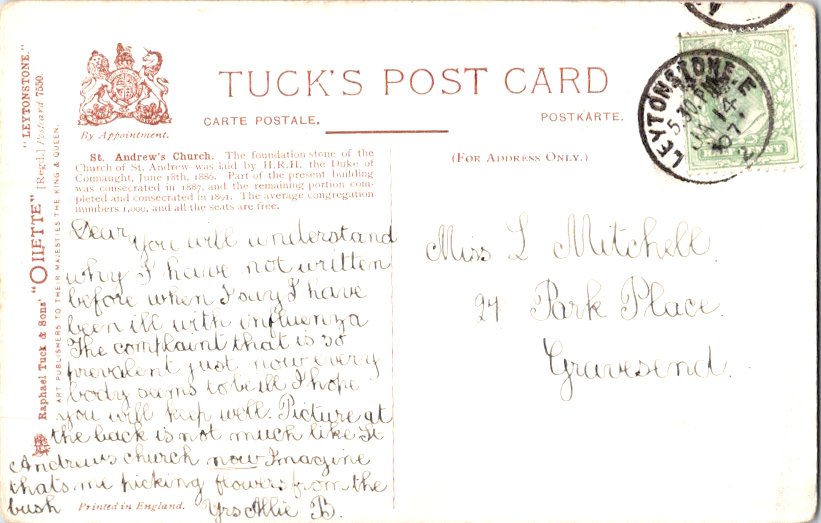 TUCK'S POST CARD
CARTE POSTALE.
POSTKARTE.
By Appointment.
(FOR ADDRESS ONLY.)
St. Andrew's Church. The foundation stone of the
Church of St. Andrew was laid by H.R.H. the Duke of
Connaught, June 18th, 1886. Part of the present building
was consecrated in 1887, and the remaining portion com-
pleted and consecrated in 1891. The average congregation
numbers 1,000, and all the seats are free.
Dear
You will understand
why I have not written
before when I say I have
been ill with influenza
The complaint that is so
prevalent just now every
body seems to be ill I hope
you will keep well. Picture at
the back is not much like St
Andrews church now Imagine
thats me picking flowers from the
bush
Yrs Allie B.
Printed in England.
Miss L Mitchell.
27 Park Place.
Gravesend.
LEYTONSTONE. E
5.30 PM
JA 14
07
HALFPENNY
Raphael Tuck & Sons' "OILETTE" [Regd.] Postcard 7550. "LEYTONSTONE."
ART PUBLISHERS TO THEIR MAJESTIES THE KING & QUEEN.